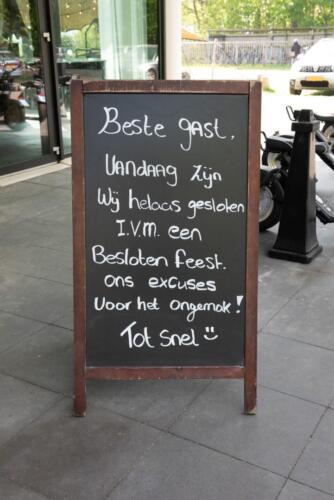 Beste gast,
Vandaag zijn
Wij helaas gesloten
I.V.M. een
Besloten feest.
ons excuses
Voor het ongemak!
Tot snel :)